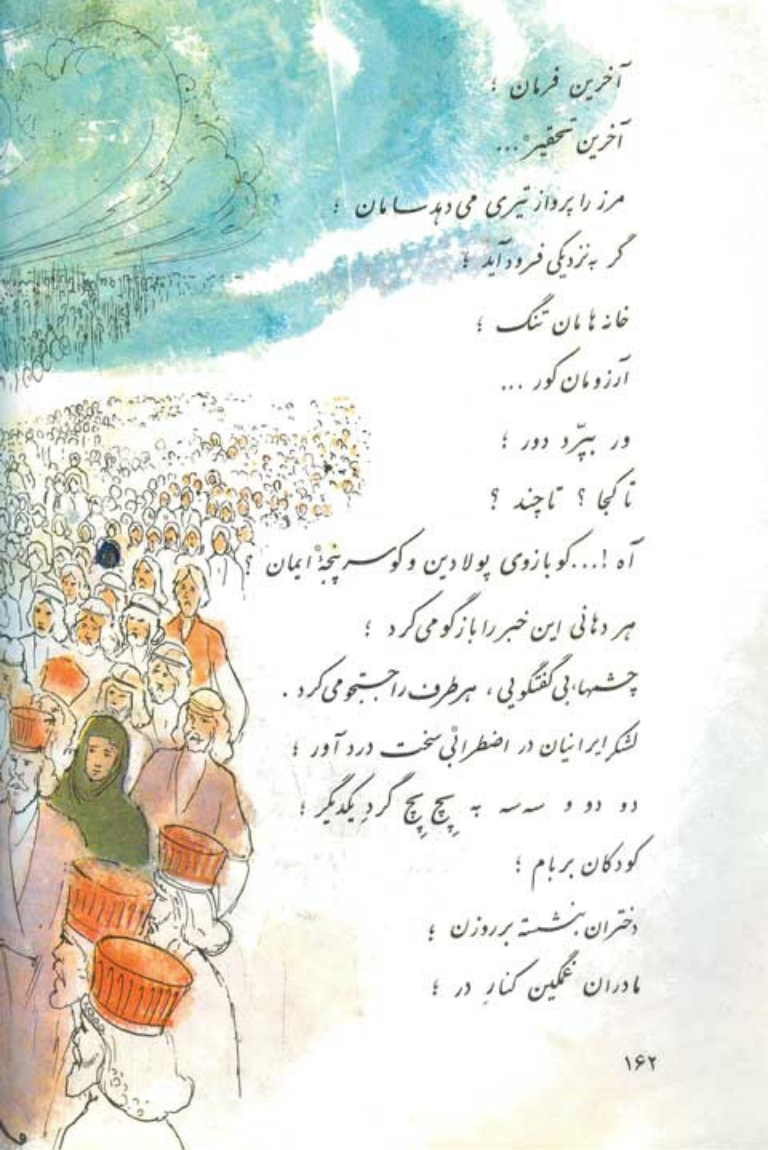 آخرین فرمان ؛
آخرین تحقیر ...
مرز را پرواز تیری می دهد سامان ؛
گر به نزدیکی فرود آید ؛
خانه هامان تنگ ؛
آرزومان کور ...
ور بپرّد دور ؛
تا کجا ؟ تا چند ؟
آه !... کو بازوی پولادین و کو سر پنجهٔ ایمان ؟
هر دهانی این خبر را بازگو می کرد ؛
چشمها، بی گفتگویی ، هر طرف را جستجو می کرد .
لشکر ایرانیان در اضطرابی سخت درد آور ؛
دو دو و سه سه به پچ پچ گردِ یکدیگر ؛
کودکان بر بام ؛
دختران بنشسته بر روزن ؛
مادران غمگین کنارِ در ؛
۱۶۲